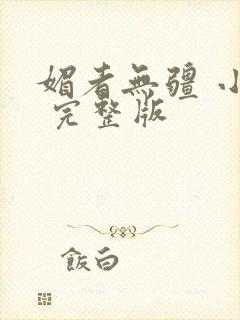 媚者無疆 小
完整版
飯白